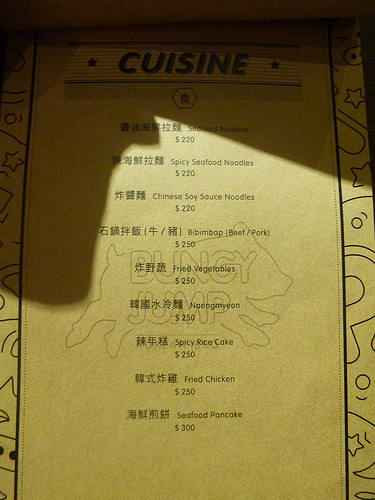 ★ CUISINE ★
食
醬油海鮮拉麵 Seafood Noodles
$ 220
辣海鮮拉麵 Spicy Seafood Noodles
$ 220
炸醬麵 Chinese Soy Sauce Noodles
$ 220
石鍋拌飯 (牛 / 豬) Bibimbap (Beef / Pork)
$ 250
炸野蔬 Fried Vegetables
$ 250
韓國水冷麵 Naengmyeon
$ 250
辣年糕 Spicy Rice Cake
$ 250
韓式炸雞 Fried Chicken
$ 250
海鮮煎餅 Seafood Pancake
$ 300
BUNGY
JUMP